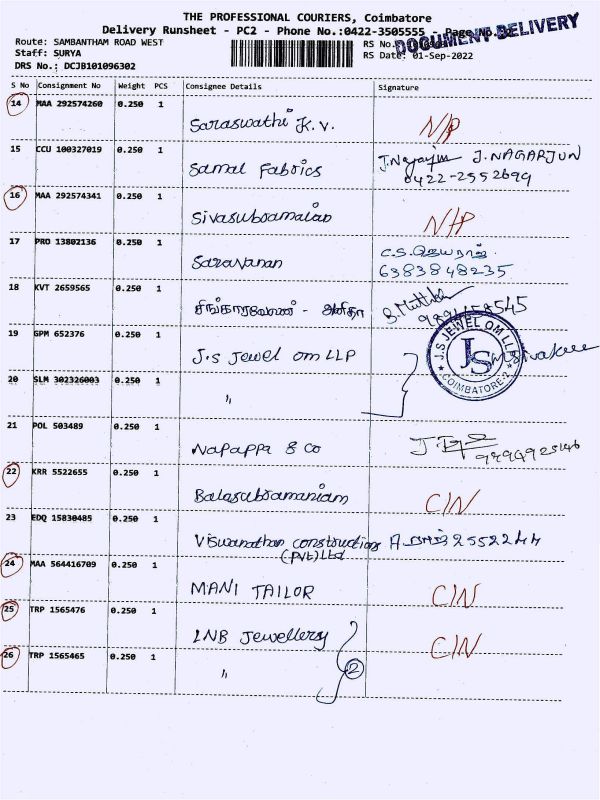 THE PROFESSIONAL COURIERS, Coimbatore
Delivery Runsheet - PC2 - Phone No.:0422-3505555 - Page No.
DOCUMENT DELIVERY
Route: SAMBANTHAM ROAD WEST RS No
Staff: SURYA RS Date: 01-Sep-2022
DRS No.: DCJB101096302
S No Consignment No Weight PCS Consignee Details Signature
14 MAA 292574260 0.250 1
Saraswathi K.V. N/P
15 CCU 100327019 0.250 1
Samal Fabrics J. NAGARJUN
0422-2552699
16 MAA 292574341 0.250 1
Sivasubramanian N/P
17 PRO 13802136 0.250 1 C.S.ஜெயராஜ்
Saravanan 6383848235
18 KVT 2659565 0.250 1
சிங்காரவேலன் - அனிதா S.Muthu
19 GPM 652376 0.250 1
J.S Jewel om LLP J.S JEWEL OM LLP
JS
COIMBATORE-2
20 SLM 302326003 0.250 1
"
21 POL 503489 0.250 1
Napappa & Co
22 KRR 5522655 0.250 1
Balasubramaniam C/N
23 EDQ 15830485 0.250 1
Viswanathan constructions A 2552244
(Pvt) Ltd
24 MAA 564416709 0.250 1
MANI TAILOR C/N
25 TRP 1565476 0.250 1
LNB Jewellery C/N
26 TRP 1565465 0.250 1
" 2